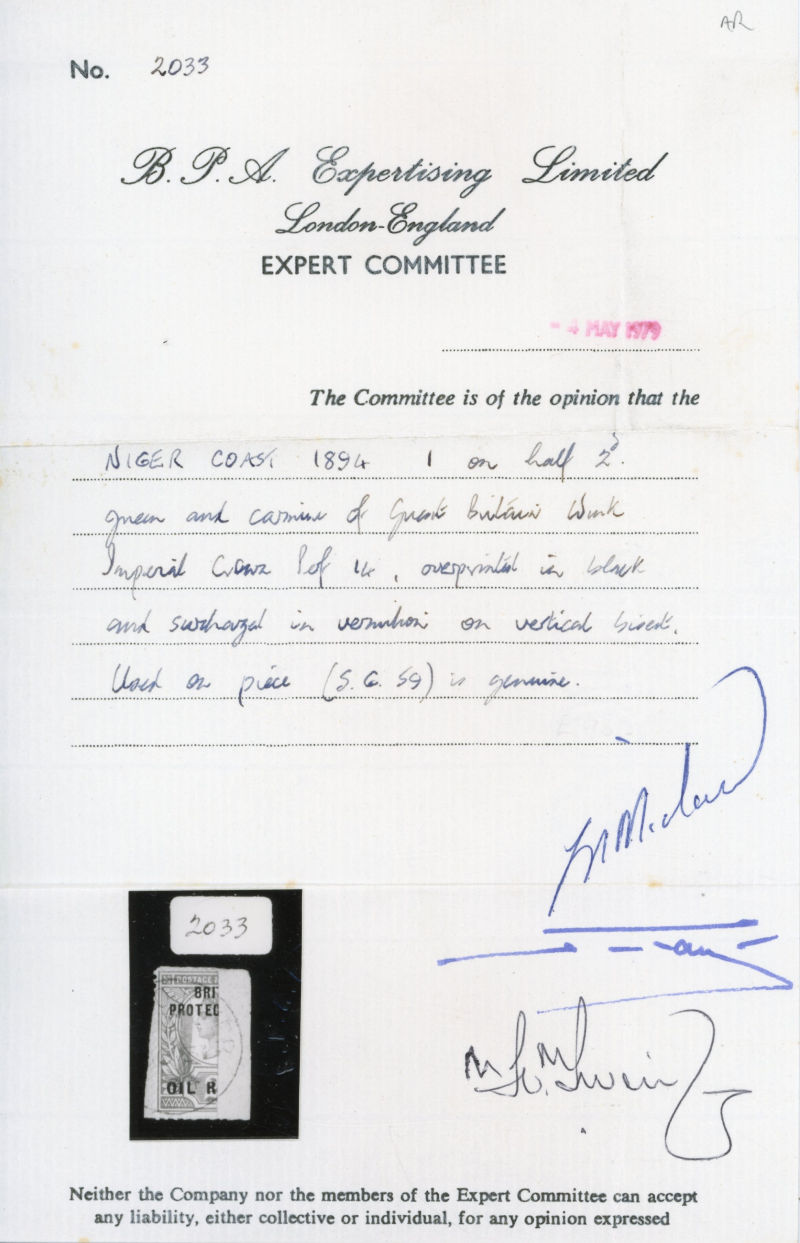 AR
No. 2033
B.P.A. Expertising Limited
London-England
EXPERT COMMITTEE
- 4 MAY 1979
The Committee is of the opinion that the
NIGER COAST 1894 1 on half 2d.
green and carmine of Great Britain Wmk
Imperial Crown Perf 14, overprinted in black
and surcharged in vermilion on vertical bisect.
Used on piece (S.G. 59) is genuine.
2033
POSTAGE
BRI
PROTEC
OIL R
Neither the Company nor the members of the Expert Committee can accept
any liability, either collective or individual, for any opinion expressed